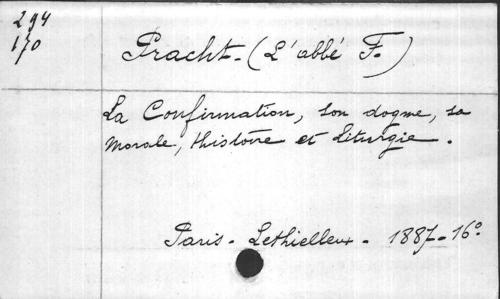 294
170
Pracht - (L'abbé F.)
La Confirmation, son dogme, sa
morale, Histoire et Liturgie.
Paris - Lethielleux - 1887 - 16°